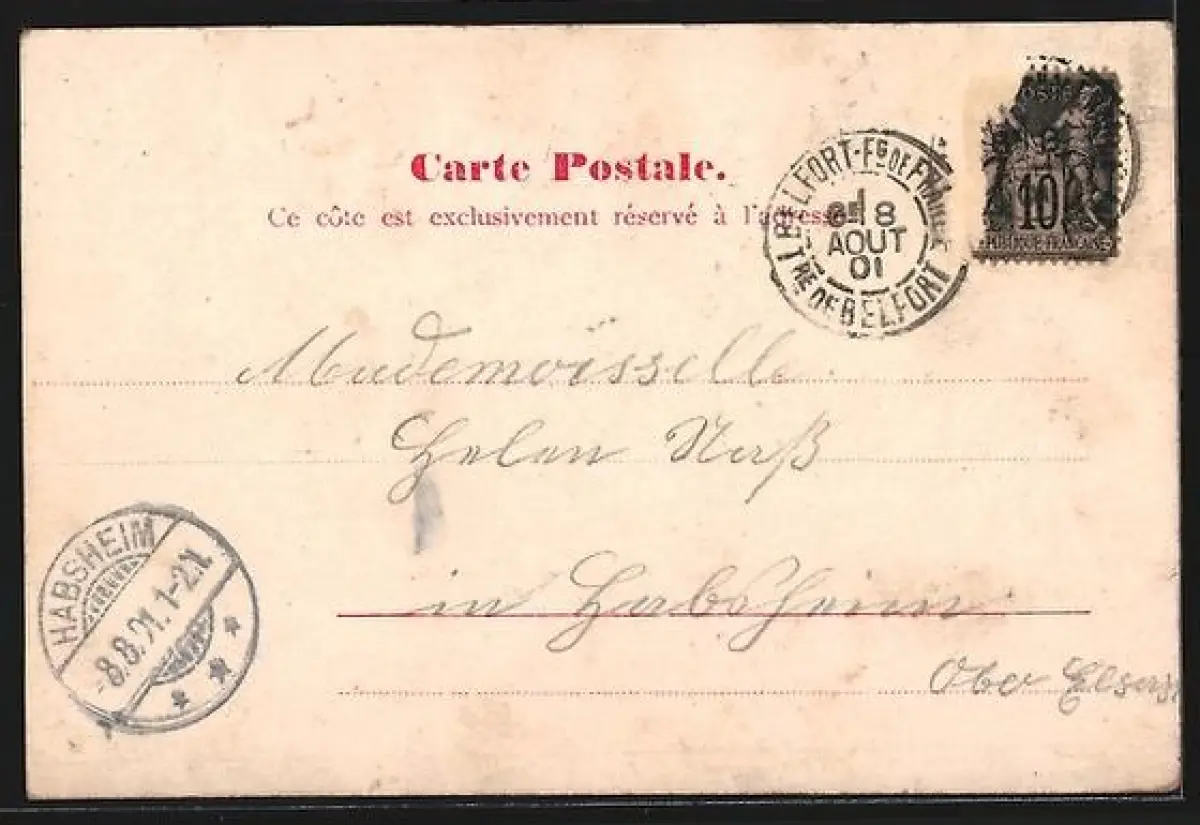 Carte Postale.
Ce côte est exclusivement réservé à l'adresse
BELFORT-FG DE FRANCE
8 8
AOUT
01
TRE DE BELFORT
POSTES
10
REPUBLIQUE FRANÇAISE
Mademoisselle
Helen Naß
in Habsheim
Ober Elsass
HABSHEIM
8.8.01.1-2N.